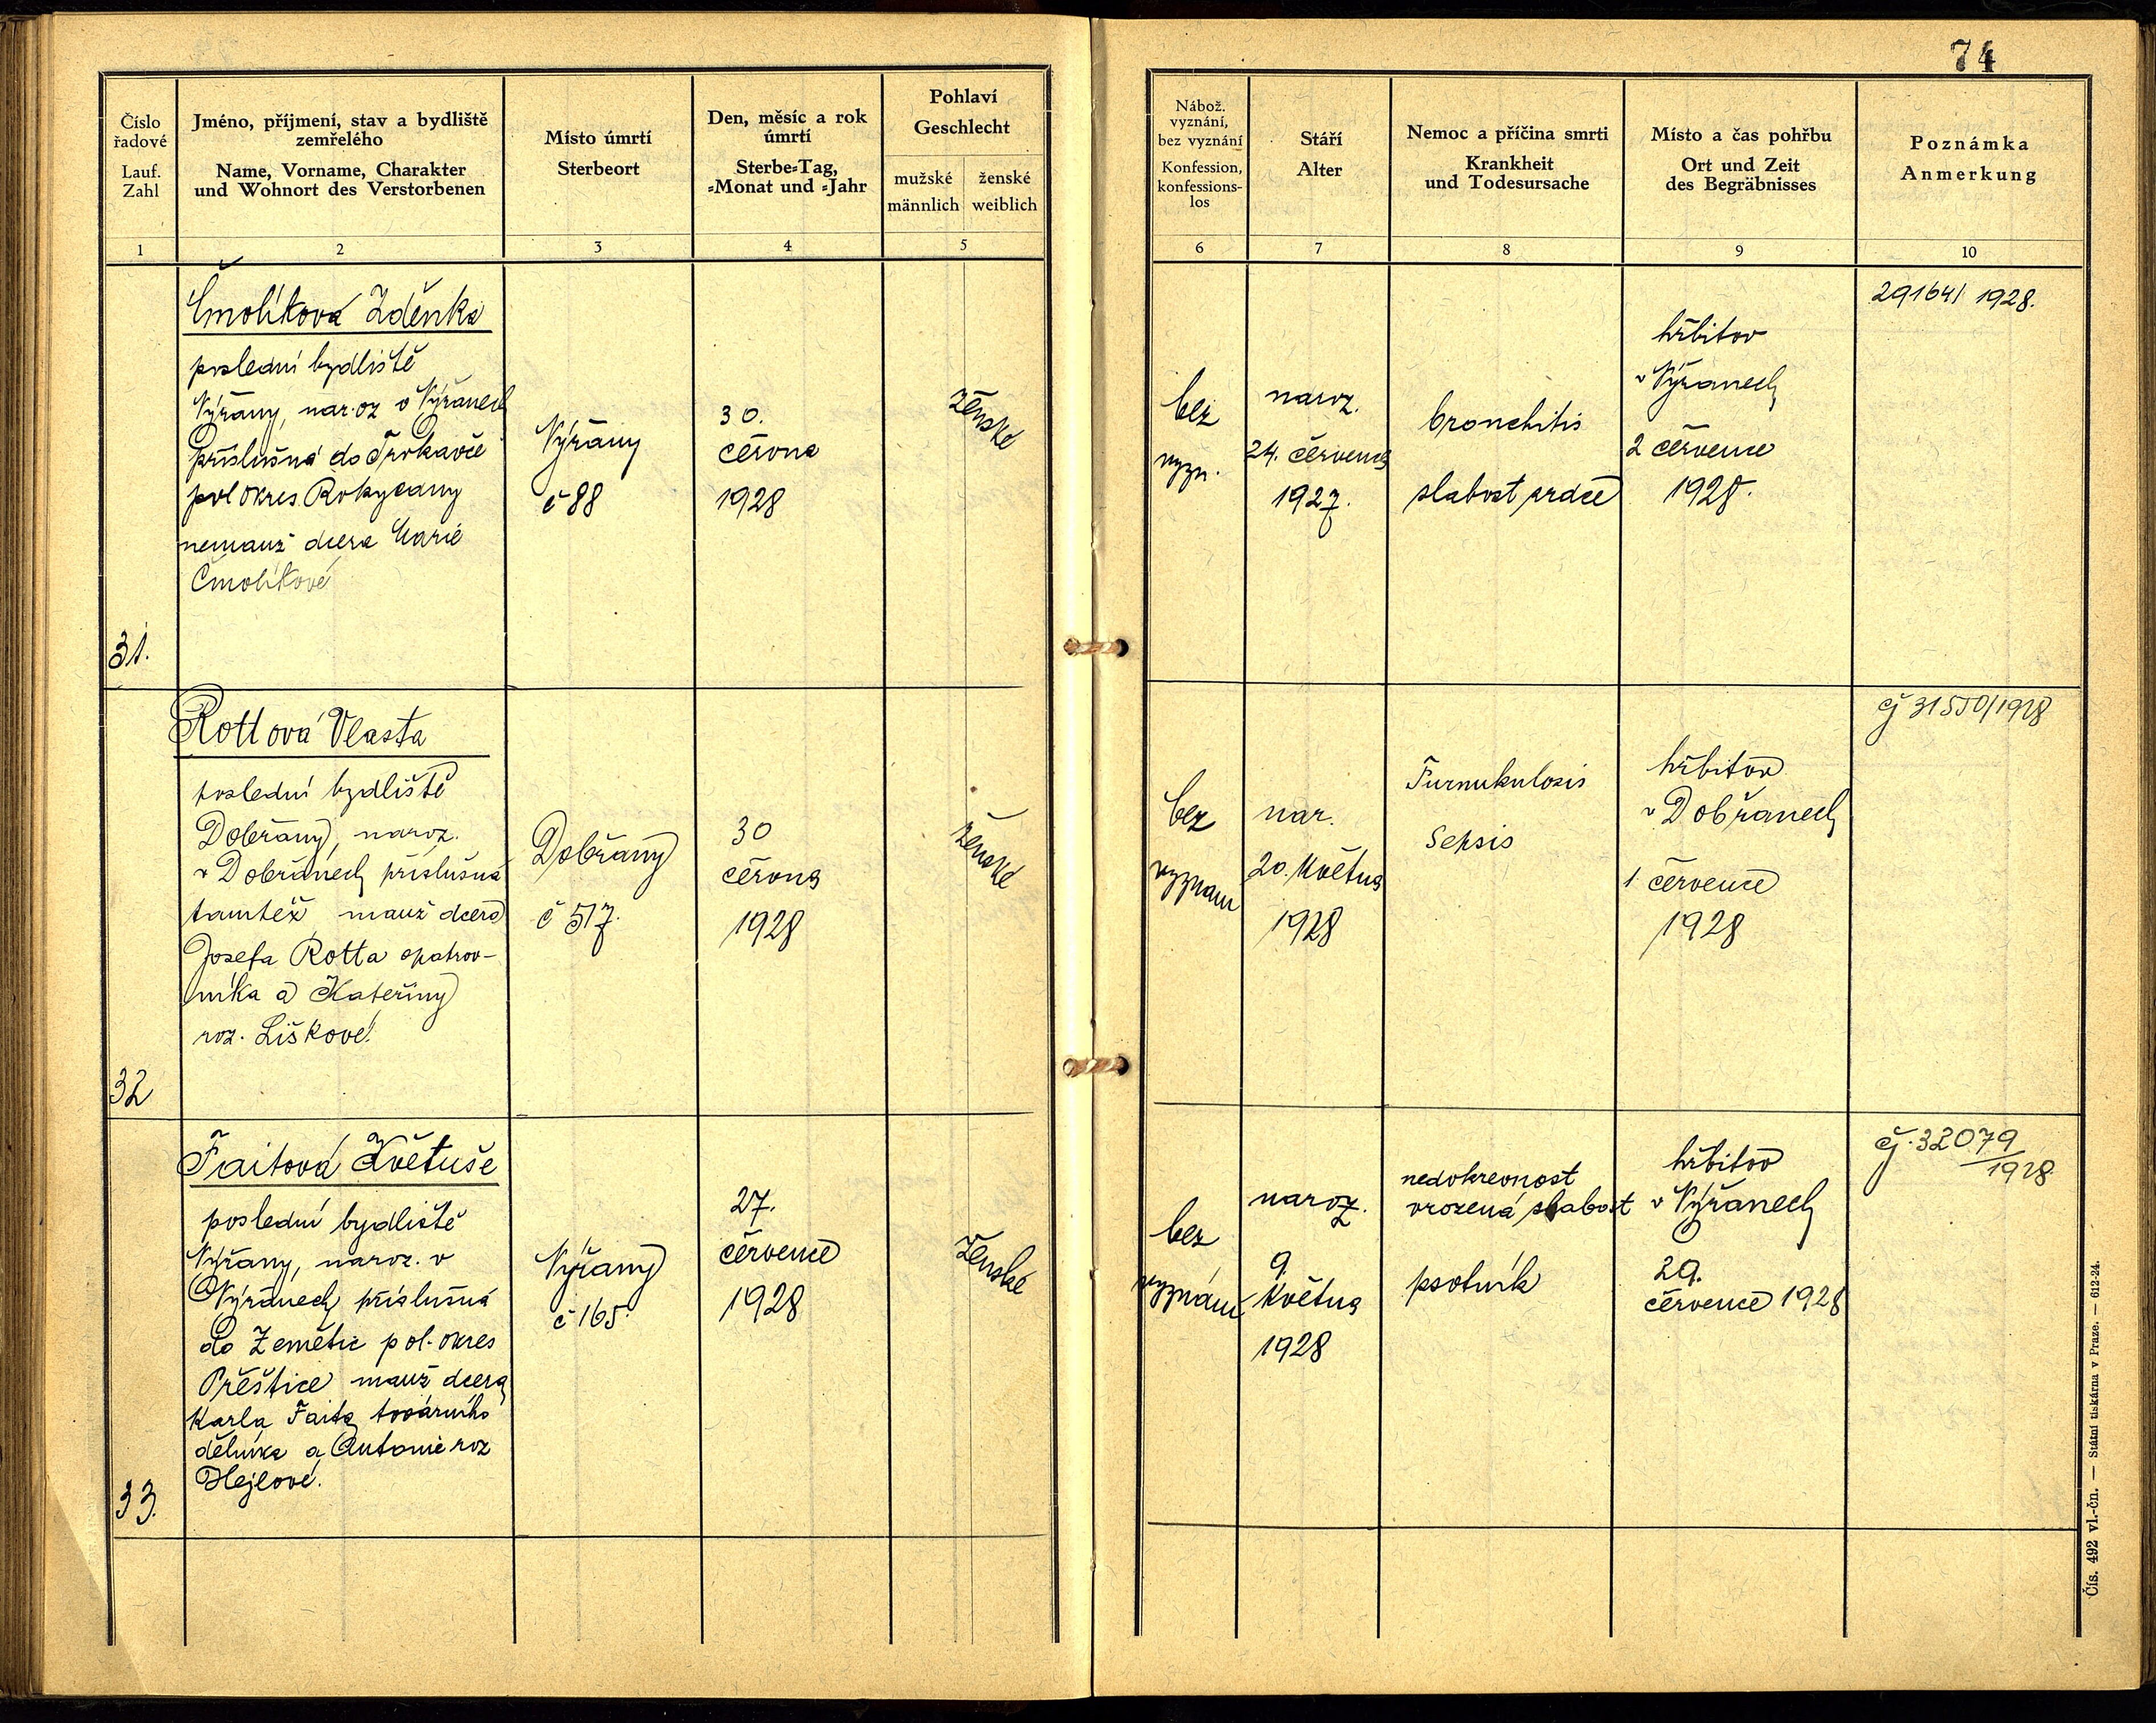 74
Číslo
řadové
Lauf.
Zahl
Jméno, příjmení, stav a bydliště
zemřelého
Name, Vorname, Charakter
und Wohnort des Verstorbenen
Místo úmrtí
Sterbeort
Den, měsíc a rok
úmrtí
Sterbe-Tag,
-Monat und -Jahr
Pohlaví
Geschlecht
mužské
männlich
ženské
weiblich
Nábož.
vyznání,
bez vyznání
Konfession,
konfessions-
los
Stáří
Alter
Nemoc a příčina smrti
Krankheit
und Todesursache
Místo a čas pohřbu
Ort und Zeit
des Begräbnisses
Poznámka
Anmerkung
1
2
3
4
5
6
7
8
9
10
31.
Čmolíková Zděnka
poslední bydliště
Výřany, nar. oz v Výřanech
příslušná do Trokavce
pol okres Rokycany
nemanž dcera Marie
Čmolíkové
Výřany
č 88
30.
června
1928
ženské
bez
vyzn.
naroz.
24. července
1927.
bronchitis
slabost srdce
hřbitov
v Výřanech
2 července
1928.
29164/ 1928.
32
Rottová Vlasta
poslední bydliště
Dobřany, naroz.
v Dobřanech příslušná
tamtéž manž dcera
Josefa Rotta opatrov-
níka a Kateřiny
roz. Liškové.
Dobřany
č 517.
30
června
1928
ženské
bez
vyznání
nar.
20. května
1928
Furnukulosis
Sepsis
hřbitov
v Dobřanech
1 července
1928
čj 31550/1928
33.
Faitová Květuše
poslední bydliště
Výřany, naroz. v
Výřanech příslušná
do Zemětic pol. okres
Přeštice manž dcera
Karla Faita továrního
dělníka a Antonie roz
Hejlové.
Výřany
č 165.
27.
července
1928
ženské
bez
vyznání
naroz.
9.
května
1928
nedokrevnost
vrozená slabost
psotník
hřbitov
v Výřanech
29.
července 1928
čj. 32079/1928
Čís. 492 vl.-čn. — Státní tiskárna v Praze. — 612-24.